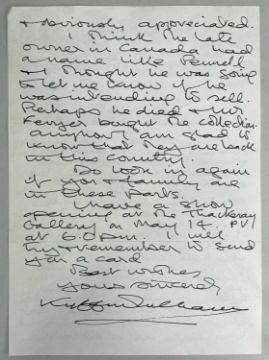 & obviously appreciated.
I think the late
owner in Canada had
a name like Pennell
& I thought he was going
to let me know if he
was intending to sell.
Perhaps he died & Mrs
bought the collection
anyhow I am glad to
know that they are back
in this country.
Do look in again
if you & family are
in these parts.
I have a show
opening at the Thackeray
Gallery on May 14. PV
at 6.0 pm. I will
try & remember to send
you a card
Best wishes
Yours sincerely
Kyffin Williams